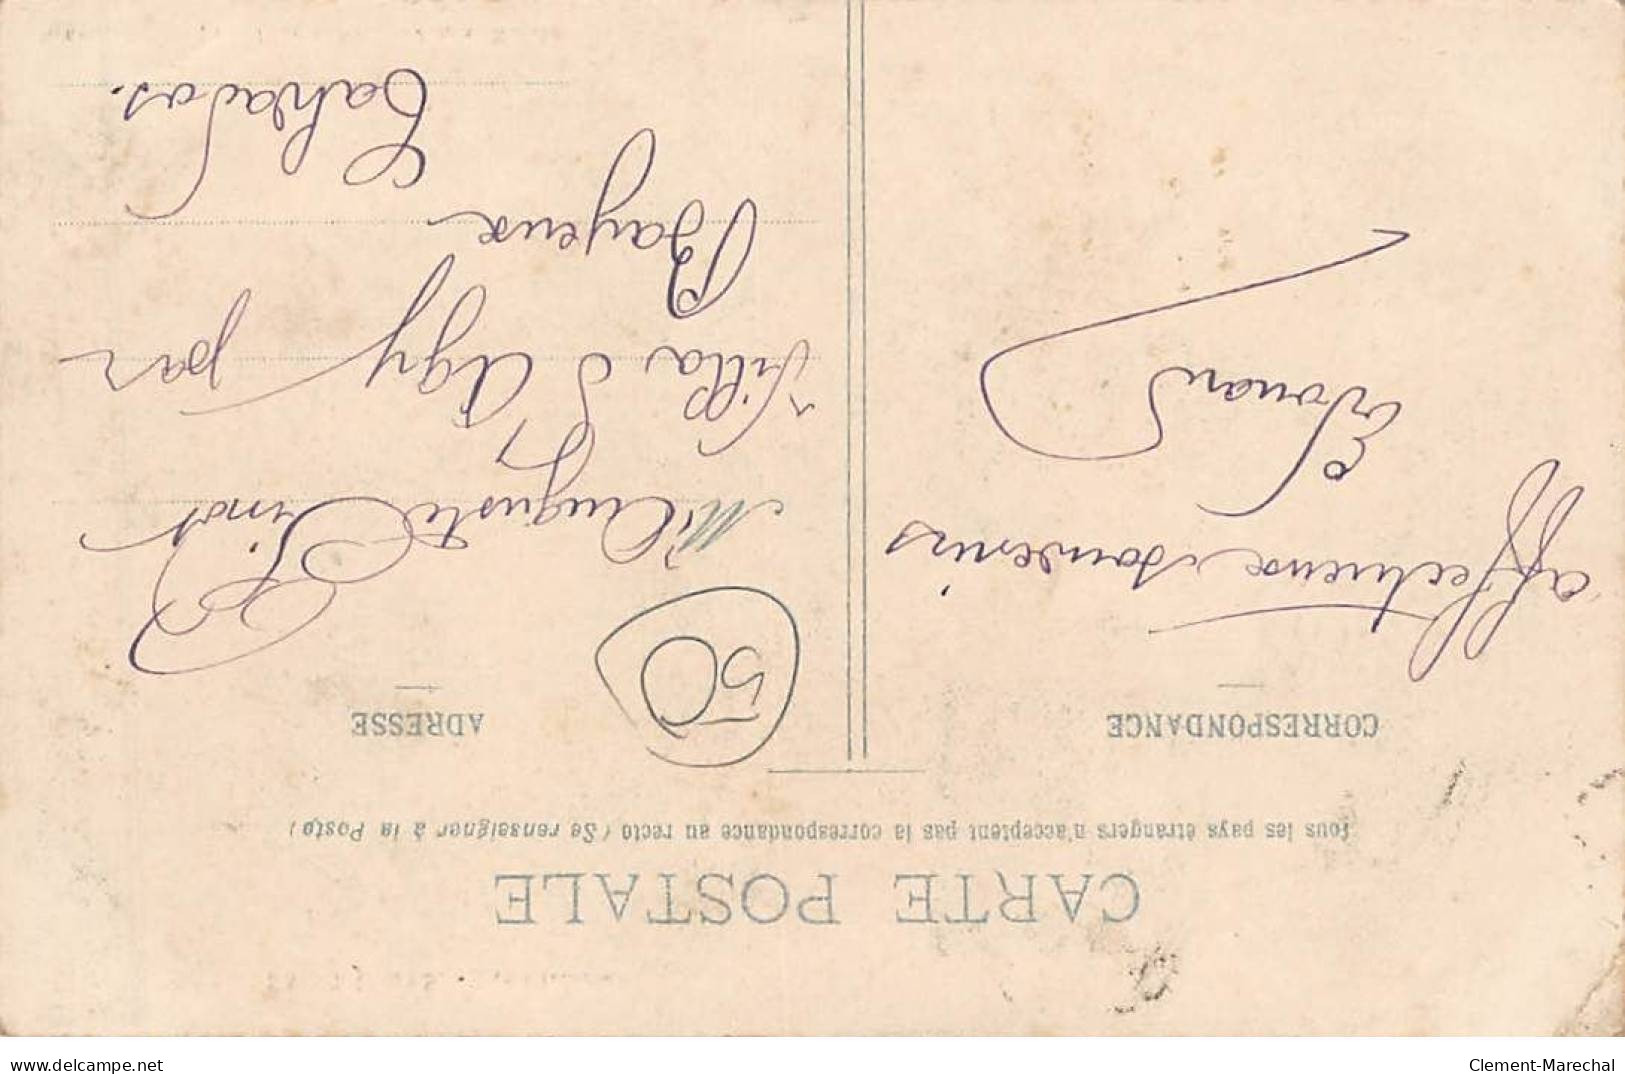 CARTE POSTALE
Tous les pays étrangers n'acceptent pas la correspondance au recto (Se renseigner à la Poste)
CORRESPONDANCE
affectueux souvenirs
Edouard
ADRESSE
50
Mr Auguste Pinot
Villa d'Agy par
Bayeux
Calvados.
delcampe.net
Clement-Marechal